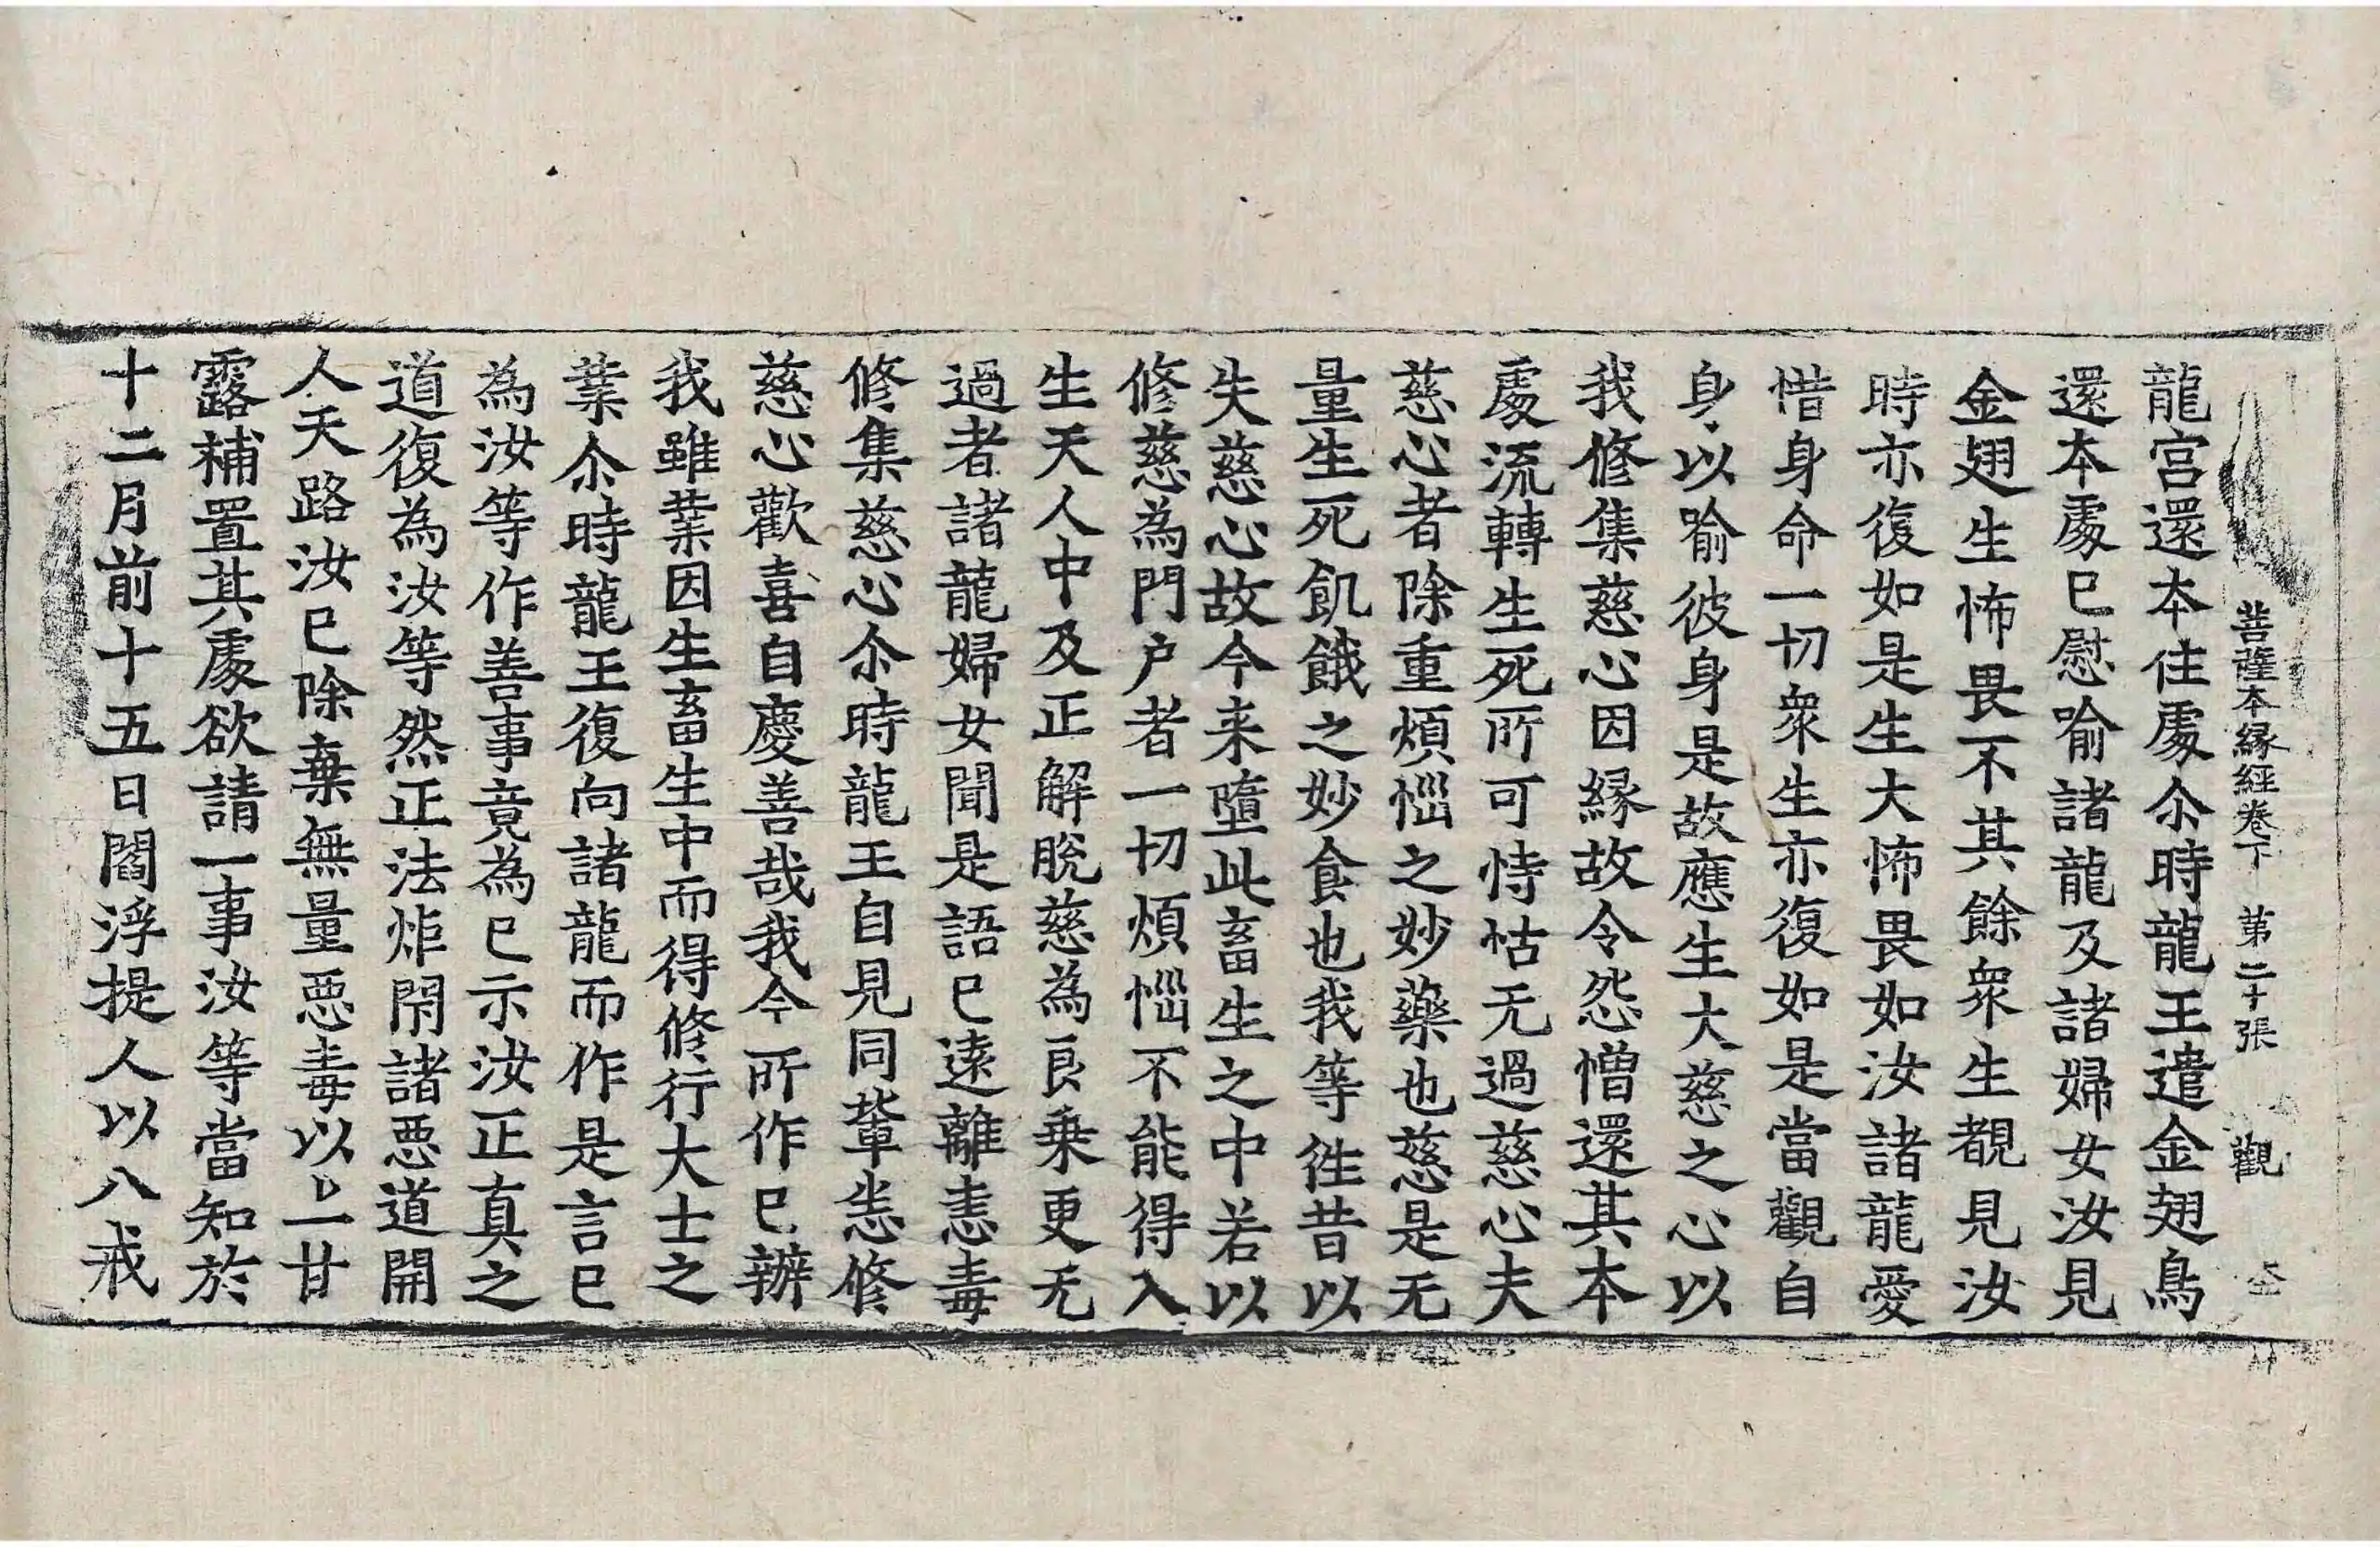 菩薩本緣經卷下 第二十張 觀
龍宮還本住處尒時龍王遣金翅鳥
還本處已慰喻諸龍及諸婦女汝見
金翅生怖畏不其餘衆生覩見汝
時亦復如是生大怖畏如汝諸龍愛
惜身命一切衆生亦復如是當觀自
身以喻彼身是故應生大慈之心以
我修集慈心因緣故令怨憎還其本
處流轉生死所可恃怙无過慈心夫
慈心者除重煩惱之妙藥也慈是无
量生死飢餓之妙食也我等徃昔以
失慈心故今来墮此畜生之中若以
修慈為門户者一切煩惱不能得入
生天人中及正解脫慈為良乗更无
過者諸龍婦女聞是語已遠離恚毒
修集慈心尒時龍王自見同輩悉修
慈心歡喜自慶善哉我今所作已辦
我雖業因生畜生中而得修行大士之
業尒時龍王復向諸龍而作是言已
為汝等作善事竟為已示汝正真之
道復為汝等然正法炬閇諸惡道開
人天路汝已除棄無量惡毒以上一甘
露補置其處欲請一事汝等當知於
十二月前十五日閻浮提人以八戒